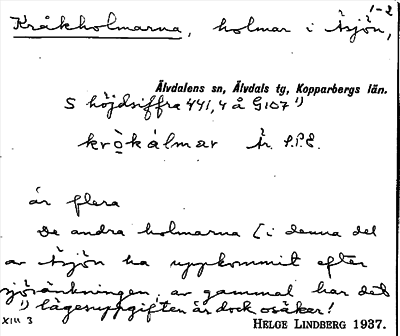 1-2
Kråkholmarna, holmar i Åsjön,
Älvdalens sn, Älvdals tg, Kopparbergs län.
S höjdsiffra 441,4 å G107 ¹)
krò̱kálmar År. P.P.E.
är flera
De andra holmarna [i denna del
av Åsjön ha uppkommit efter
sjösänkningen, av gammal har det
¹) lägesuppgiften är dock osäker!
XIII 3 HELGE LINDBERG 1937.